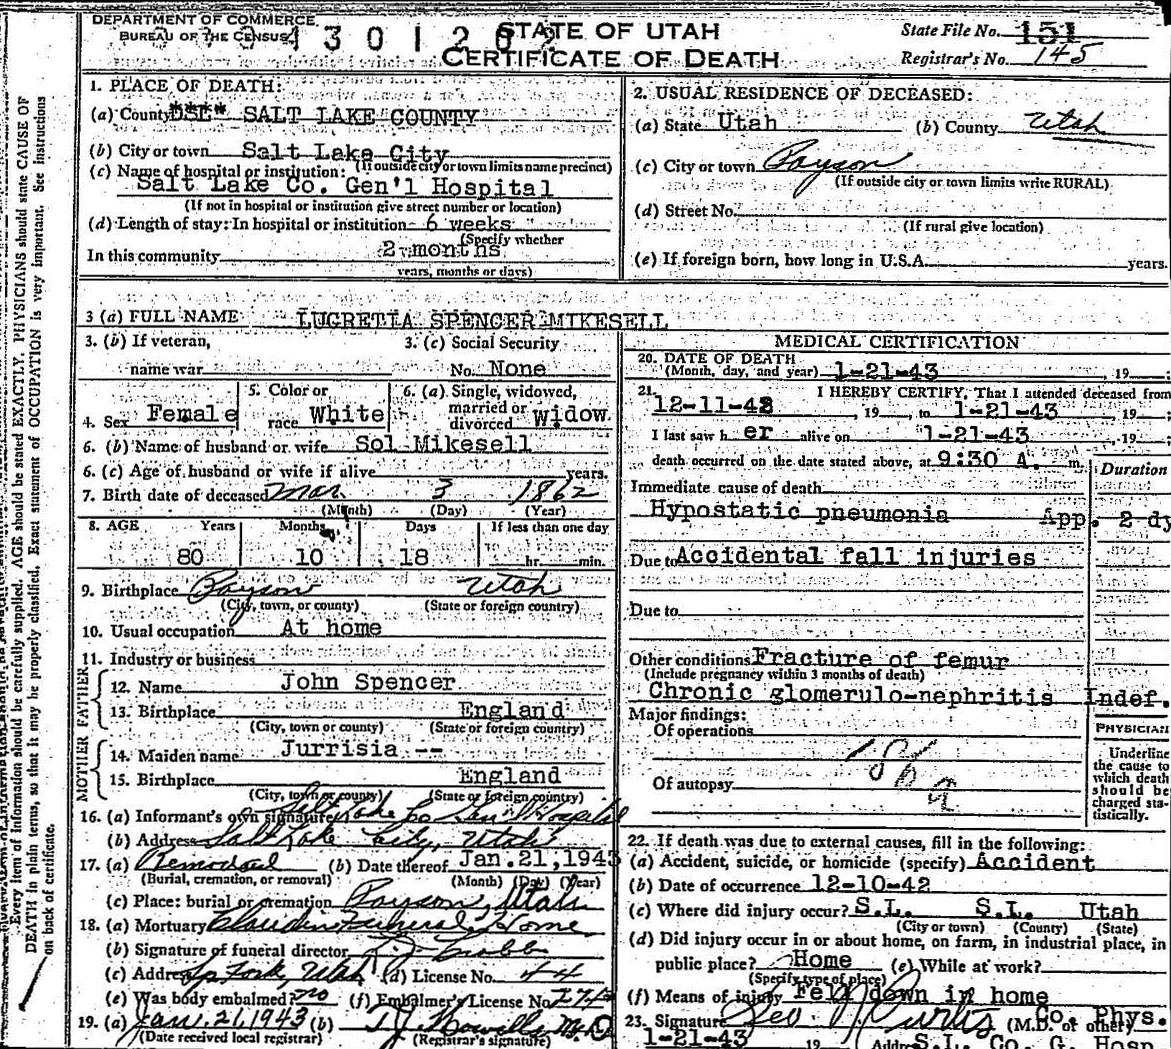 DEPARTMENT OF COMMERCE
BUREAU OF THE CENSUS
STATE OF UTAH
CERTIFICATE OF DEATH
State File No. 151
Registrar's No. 145
Every item of information should be carefully supplied. AGE should be stated EXACTLY. PHYSICIANS should state CAUSE OF
DEATH in plain terms, so that it may be properly classified. Exact statement of OCCUPATION is very important. See instructions
on back of certificate.
1. PLACE OF DEATH:
(a) County SALT LAKE COUNTY
(b) City or town Salt Lake City
(If outside city or town limits name precinct)
(c) Name of hospital or institution:
Salt Lake Co. Gen'l Hospital
(If not in hospital or institution give street number or location)
(d) Length of stay: In hospital or institution 6 weeks
(Specify whether
In this community 2 months
years, months or days)
2. USUAL RESIDENCE OF DECEASED:
(a) State Utah (b) County Utah
(c) City or town Payson
(If outside city or town limits write RURAL)
(d) Street No.
(If rural give location)
(e) If foreign born, how long in U.S.A. years.
3 (a) FULL NAME LUCRETIA SPENCER MIKESELL
3. (b) If veteran,
name war
3. (c) Social Security
No. None
4. Sex Female
5. Color or
race White
6. (a) Single, widowed,
married or
divorced Widow
6. (b) Name of husband or wife Sol Mikesell
6. (c) Age of husband or wife if alive years.
7. Birth date of deceased Mar. 3 1862
(Month) (Day) (Year)
8. AGE Years Months Days If less than one day
80 10 18 hr. min.
9. Birthplace Payson Utah
(City, town, or county) (State or foreign country)
10. Usual occupation At home
11. Industry or business
FATHER
12. Name John Spencer
13. Birthplace England
(City, town or county) (State or foreign country)
MOTHER
14. Maiden name Jurrisia --
15. Birthplace England
(City, town or county) (State or foreign country)
16. (a) Informant's own signature Salt Lake Co Gen'l Hospital
(b) Address Salt Lake City, Utah
17. (a) Removal (b) Date thereof Jan. 21, 1943
(Burial, cremation, or removal) (Month) (Day) (Year)
(c) Place: burial or cremation Payson, Utah
18. (a) Mortuary Claudin Funeral Home
(b) Signature of funeral director
(c) Address Sp Fork, Utah (d) License No. 44
(e) Was body embalmed? no (f) Embalmer's License No.
19. (a) Jan. 21, 1943 (b) T. J. Howells M.D.
(Date received local registrar) (Registrar's signature)
MEDICAL CERTIFICATION
20. DATE OF DEATH
(Month, day, and year) 1-21-43, 19
21. I HEREBY CERTIFY, That I attended deceased from
12-11-42, 19, to 1-21-43, 19 ;
I last saw h er alive on 1-21-43, 19 ;
death occurred on the date stated above, at 9:30 A. m.
Duration
Immediate cause of death
Hypostatic pneumonia App. 2 dy
Due to Accidental fall injuries
Due to
Other conditions Fracture of femur
(Include pregnancy within 3 months of death)
Chronic glomerulo-nephritis Indef.
Major findings:
Of operations
186a
Of autopsy
PHYSICIAN
Underline
the cause to
which death
should be
charged sta-
tistically.
22. If death was due to external causes, fill in the following:
(a) Accident, suicide, or homicide (specify) Accident
(b) Date of occurrence 12-10-42
(c) Where did injury occur? S.L. S.L. Utah
(City or town) (County) (State)
(d) Did injury occur in or about home, on farm, in industrial place, in
public place? Home (e) While at work?
(Specify type of place)
(f) Means of injury Fell down in home
23. Signature Geo N Curtis Co. Phys.
(M.D. or other)
1-21-43 19 Address S.L. Co. G. Hosp